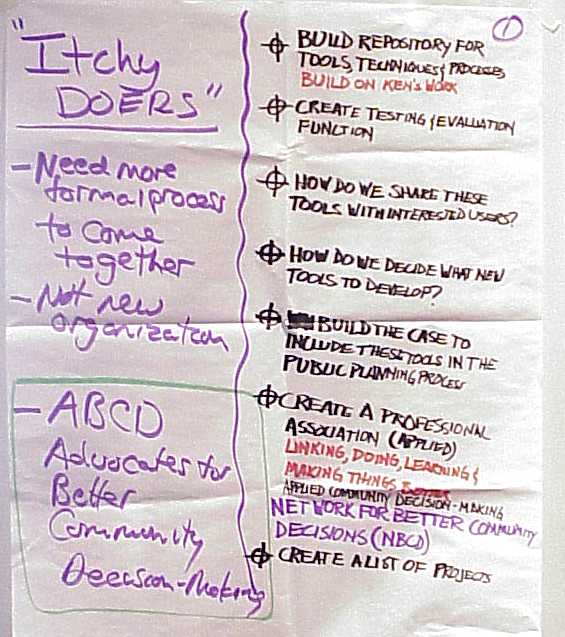 "Itchy
DOERS"
- Need more
formal process
to come
together
- Not new
organization
- ABCD
Advocates for
Better
Community
Decision-Making
1
BUILD REPOSITORY FOR
TOOLS TECHNIQUES & PROCESSES
BUILD ON KEN'S WORK
CREATE TESTING & EVALUATION
FUNCTION
HOW DO WE SHARE THESE
TOOLS WITH INTERESTED USERS?
HOW DO WE DECIDE WHAT NEW
TOOLS TO DEVELOP?
BUILD THE CASE TO
INCLUDE THESE TOOLS IN THE
PUBLIC PLANNING PROCESS
CREATE A PROFESSIONAL
ASSOCIATION (APPLIED)
LINKING, DOING, LEARNING &
MAKING THINGS BETTER
APPLIED COMMUNITY DECISION-MAKING
NETWORK FOR BETTER COMMUNITY
DECISIONS (NBCD)
CREATE A LIST OF PROJECTS